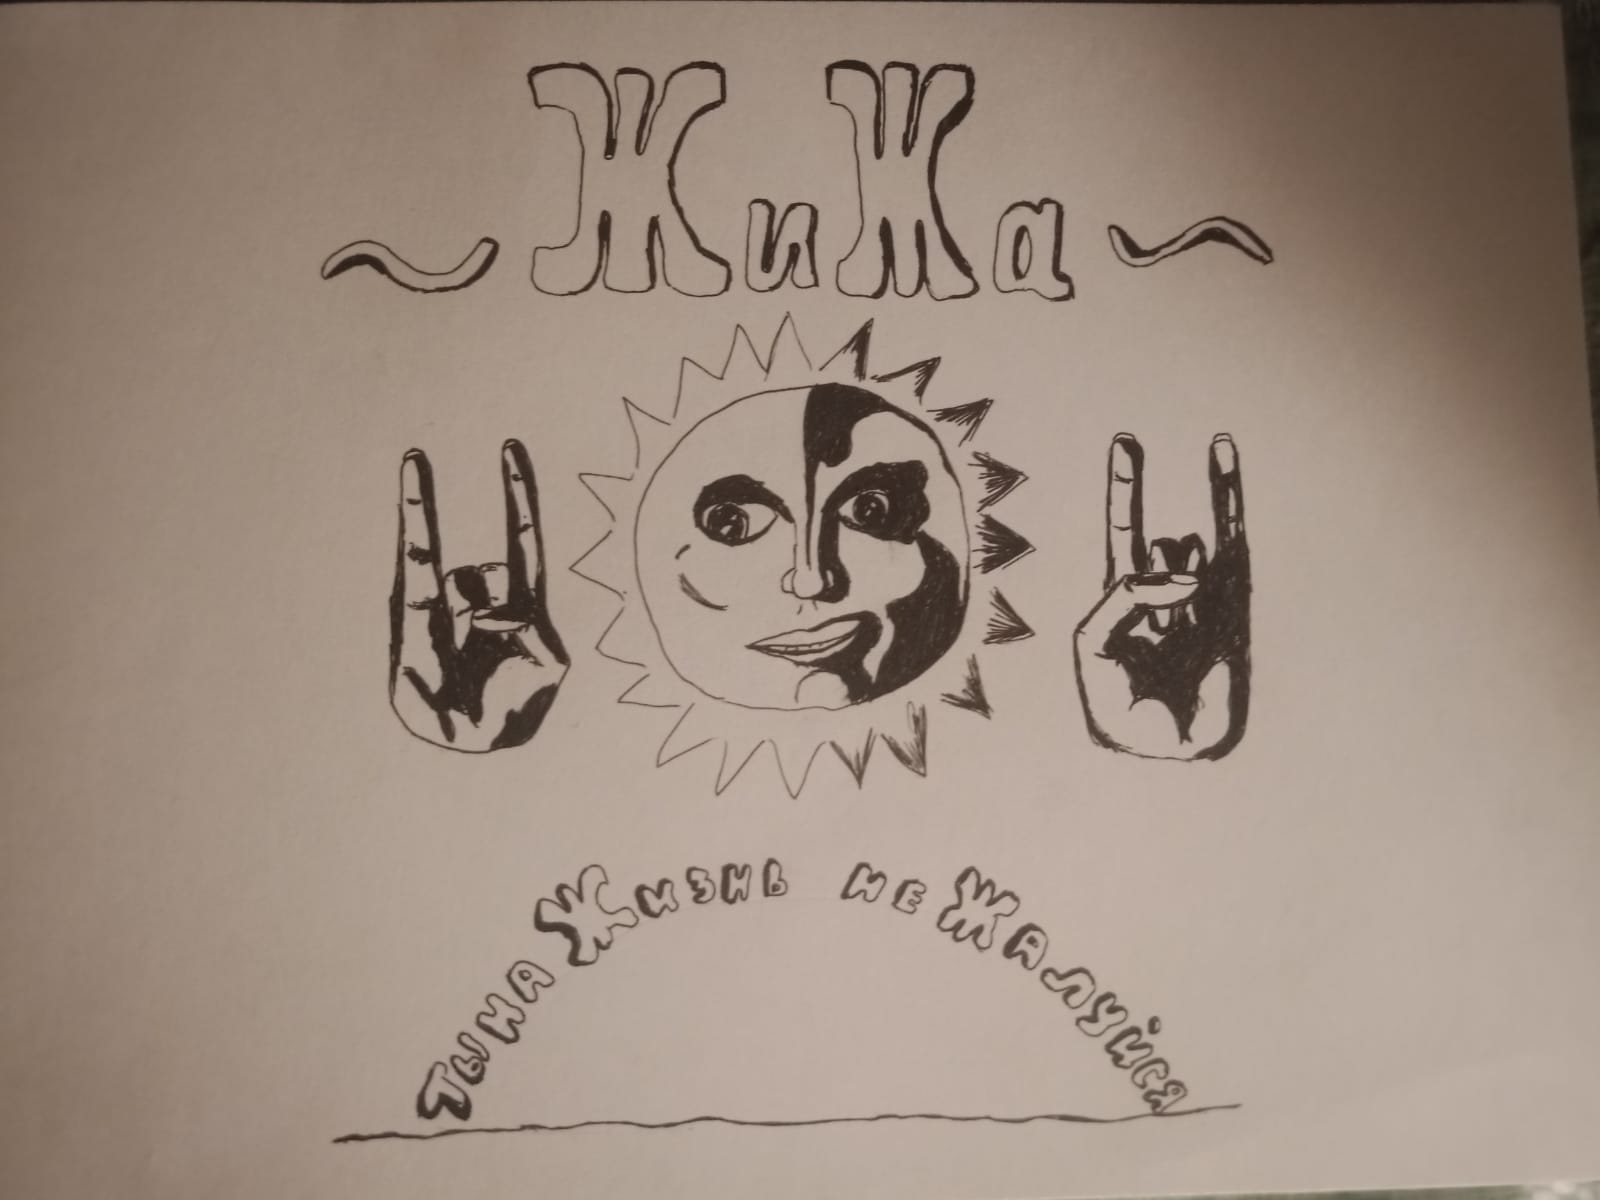 ~ ЖиЖа ~
Ты на Жизнь не Жалуйся